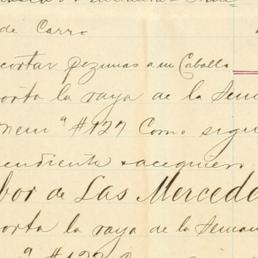 de Carro
cortar pezunas a un Caballo
porta la raya de la Seman
nem ª #127 Como sigu
pendiente y acequiero
bor de Las Mercede
orta la raya de la Seman
ª #127